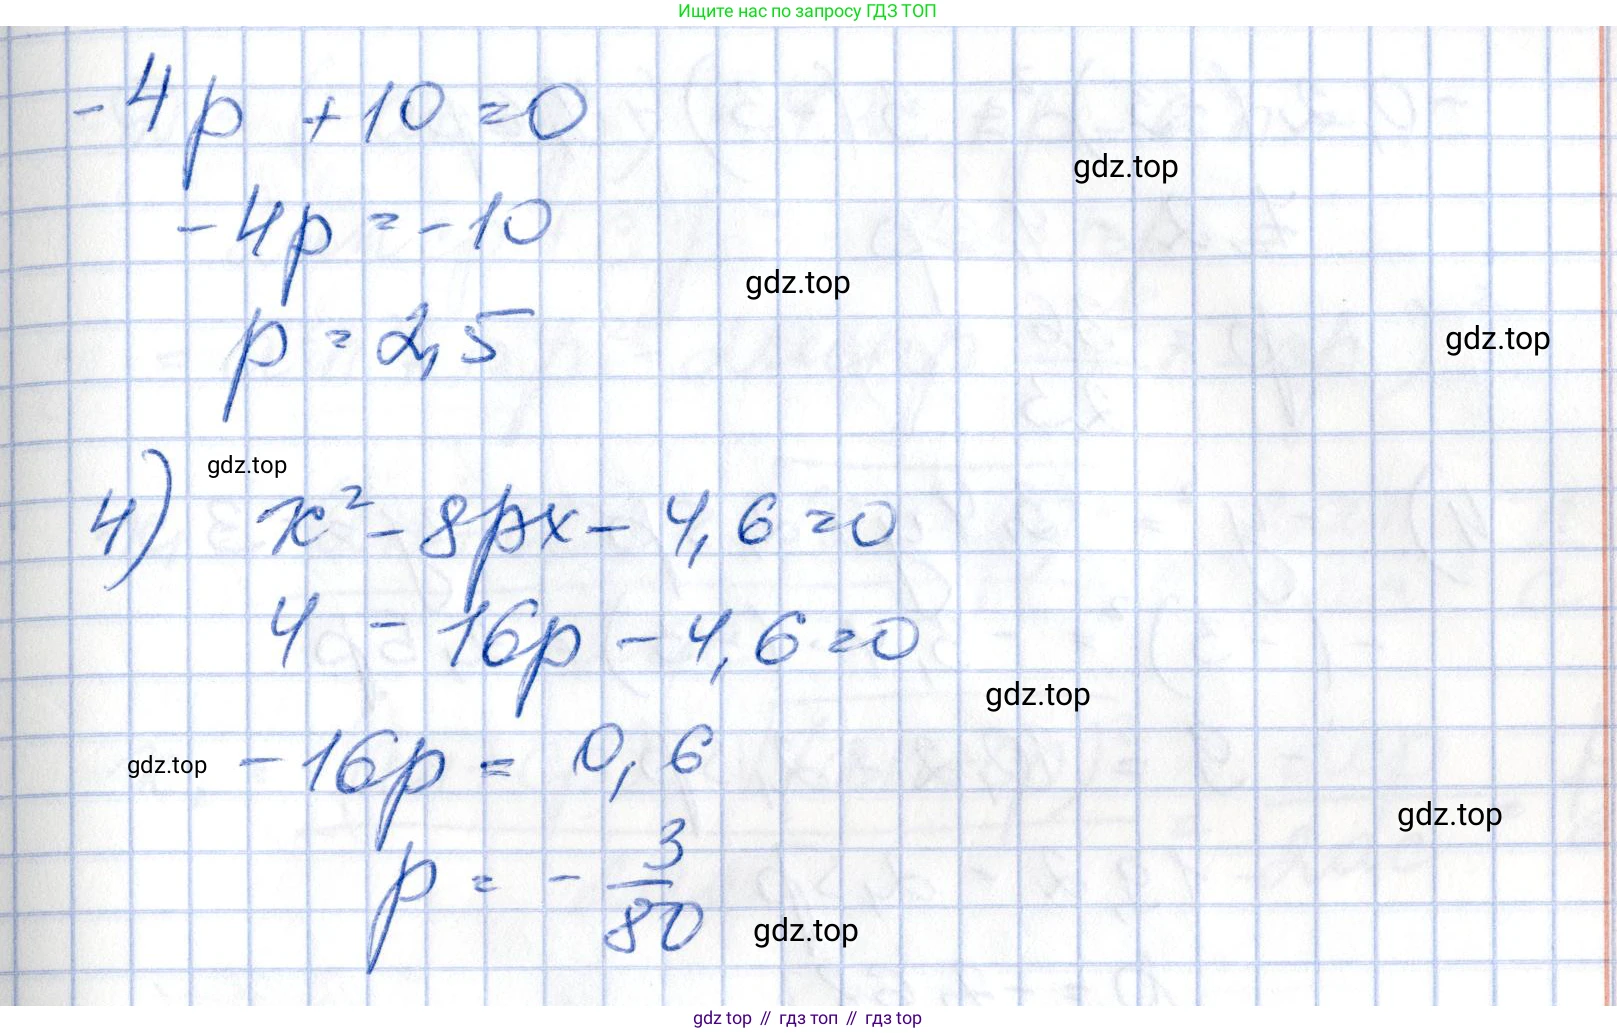 Ищите нас по запросу ГДЗ ТОП
-4p + 10 = 0
gdz.top
-4p = -10
gdz.top
p = 2,5
gdz.top
gdz.top
4) x² - 8px - 4,6 = 0
4 - 16p - 4,6 = 0
gdz.top
gdz.top -16p = 0,6
gdz.top
p = - 3/80
gdz.top
gdz top // гдз топ // гдз top